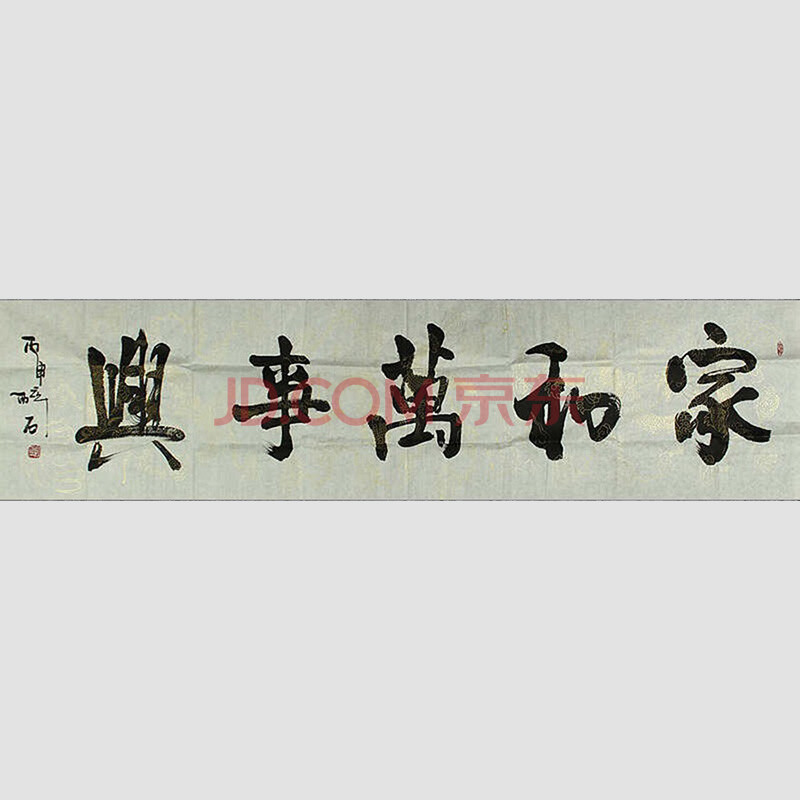 家和萬事興
丙申
石
JD.COM 京东